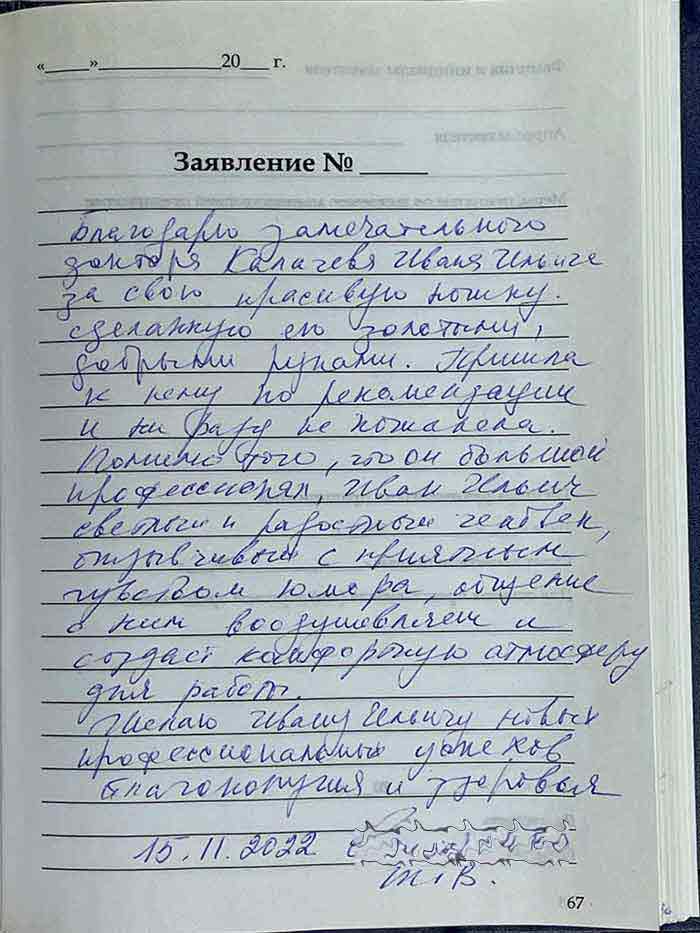 «____»____________20___ г.
Заявление № _____
Благодарю замечательного
доктора Калачева Ивана Ильича
за свою красивую ножку.
сделанную его золотыми,
добрыми руками. Пришла
к нему по рекомендации
и ни разу не пожалела.
Помимо того, что он большой
профессионал, Иван Ильич
светлый и радостный человек,
отзывчивый с приятным
чувством юмора, общение
с ним воодушевляет и
создаст комфортную атмосферу
для работы.
Желаю Ивану Ильичу новых
профессиональных успехов
благополучия и здоровья
15.11.2022
67